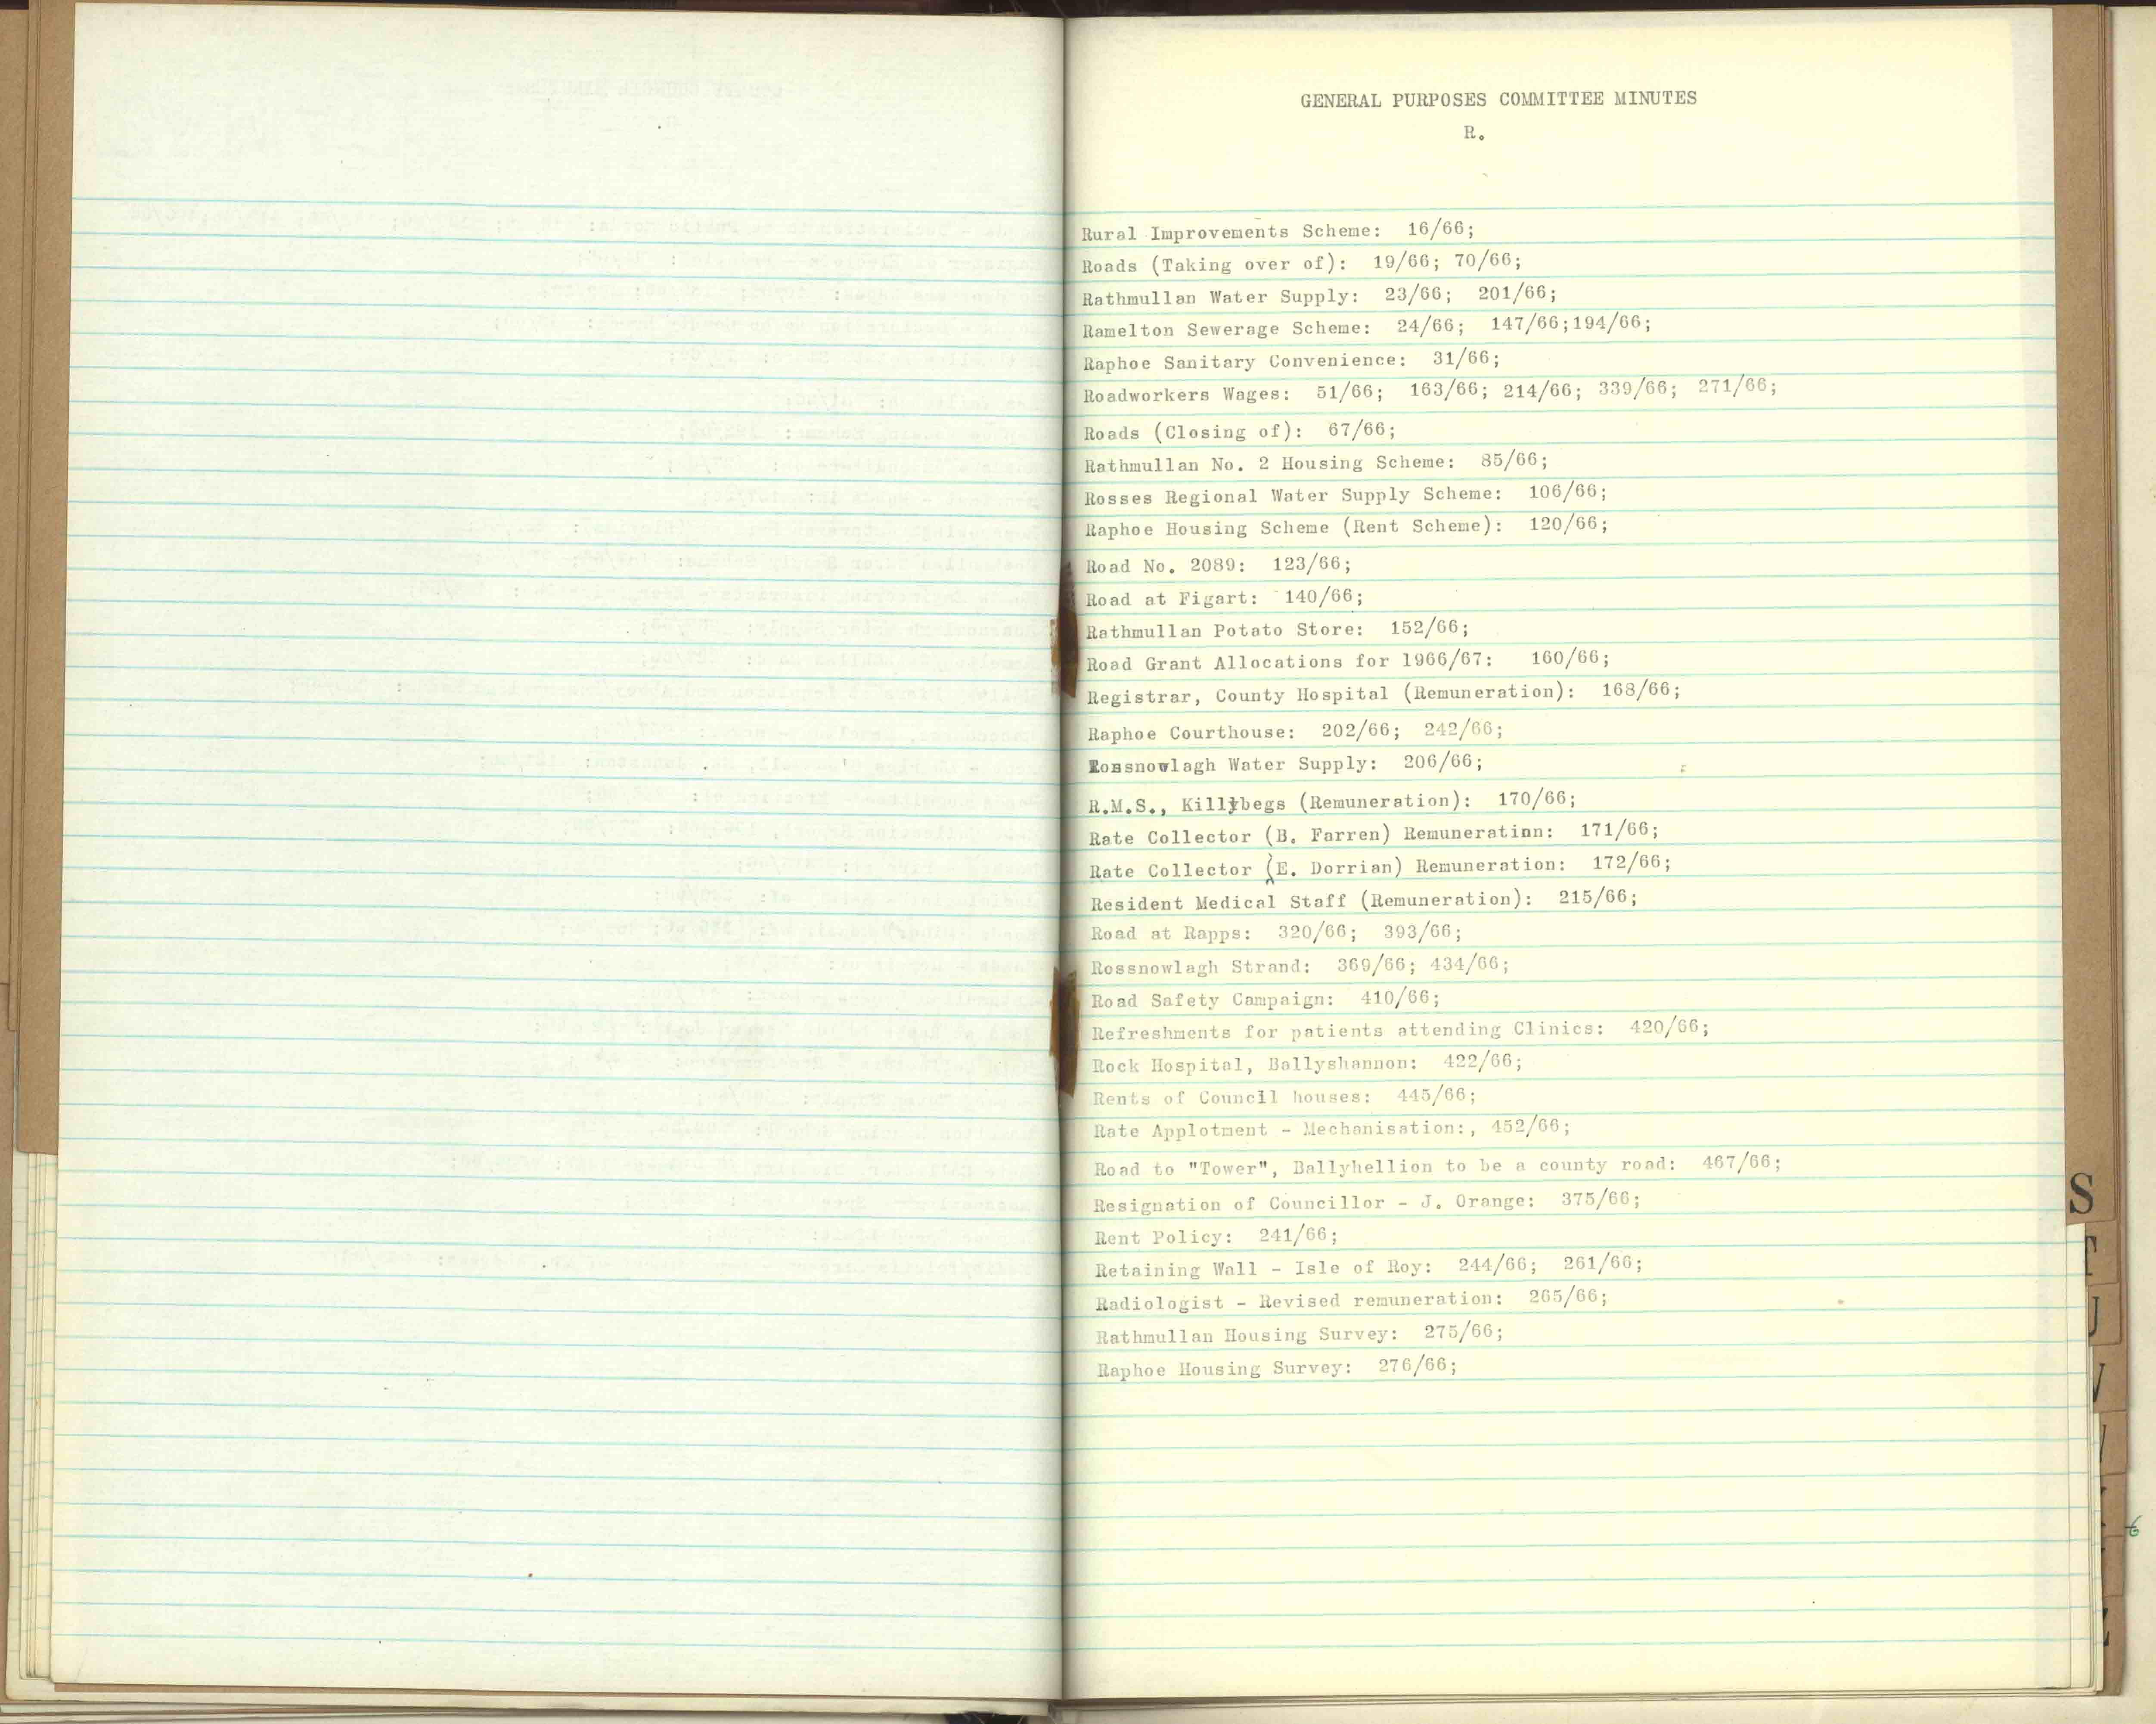 GENERAL PURPOSES COMMITTEE MINUTES
R.
Rural Improvements Scheme: 16/66;
Roads (Taking over of): 19/66; 70/66;
Rathmullan Water Supply: 23/66; 201/66;
Ramelton Sewerage Scheme: 24/66; 147/66;194/66;
Raphoe Sanitary Convenience: 31/66;
Roadworkers Wages: 51/66; 163/66; 214/66; 339/66; 271/66;
Roads (Closing of): 67/66;
Rathmullan No. 2 Housing Scheme: 85/66;
Rosses Regional Water Supply Scheme: 106/66;
Raphoe Housing Scheme (Rent Scheme): 120/66;
Road No. 2089: 123/66;
Road at Figart: 140/66;
Rathmullan Potato Store: 152/66;
Road Grant Allocations for 1966/67: 160/66;
Registrar, County Hospital (Remuneration): 168/66;
Raphoe Courthouse: 202/66; 242/66;
Rossnowlagh Water Supply: 206/66;
R.M.S., Killybegs (Remuneration): 170/66;
Rate Collector (B. Farren) Remuneratinn: 171/66;
Rate Collector (E. Dorrian) Remuneration: 172/66;
Resident Medical Staff (Remuneration): 215/66;
Road at Rapps: 320/66; 393/66;
Rossnowlagh Strand: 369/66; 434/66;
Road Safety Campaign: 410/66;
Refreshments for patients attending Clinics: 420/66;
Rock Hospital, Ballyshannon: 422/66;
Rents of Council houses: 445/66;
Rate Applotment - Mechanisation:, 452/66;
Road to "Tower", Ballyhellion to be a county road: 467/66;
Resignation of Councillor - J. Orange: 375/66;
Rent Policy: 241/66;
Retaining Wall - Isle of Roy: 244/66; 261/66;
Radiologist - Revised remuneration: 265/66;
Rathmullan Housing Survey: 275/66;
Raphoe Housing Survey: 276/66;
S
T
U
V